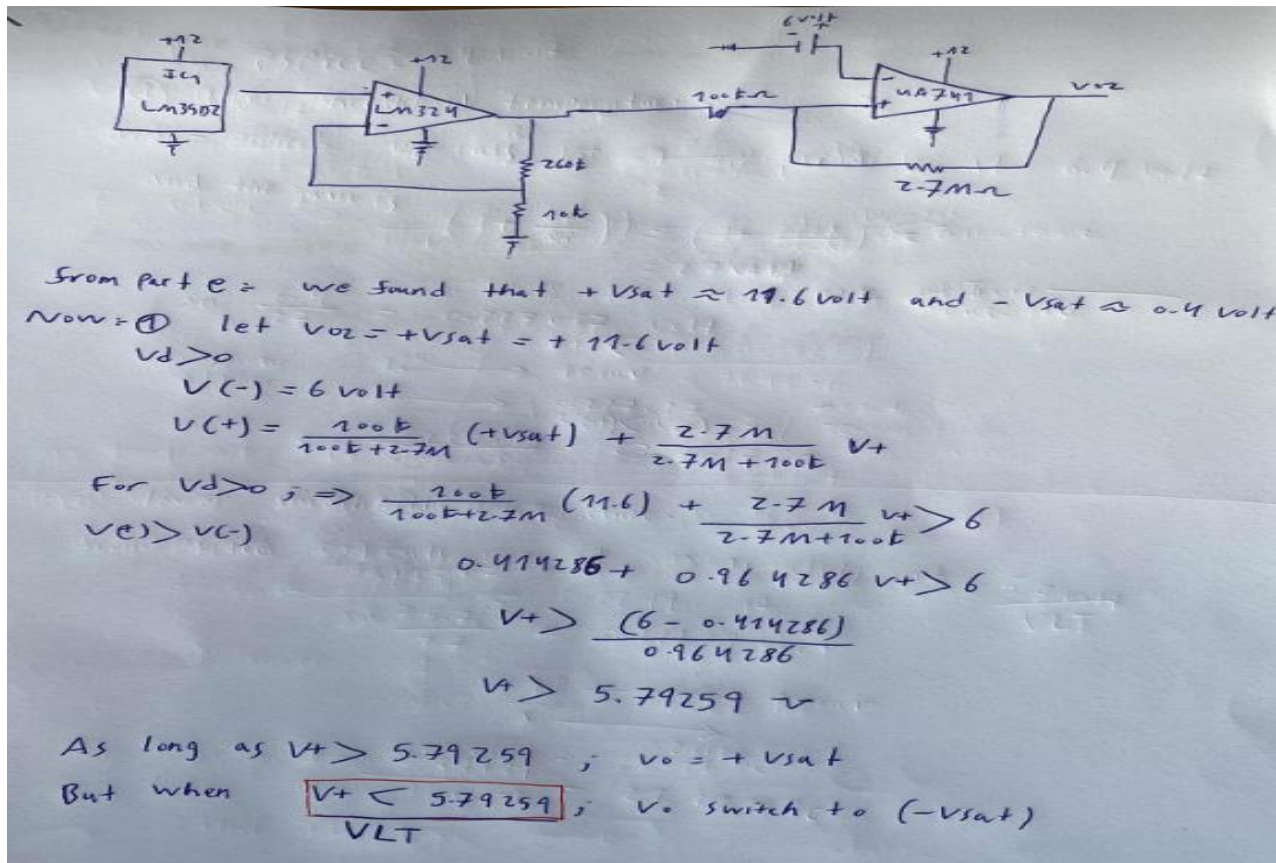 6 volt
- +
+12
IC1
LM3502
+12
+
LM324
-
260k
10k
100kΩ
+12
-
UA741
+
VO2
2.7MΩ
From Part e: we found that +Vsat ≈ 11.6 volt and -Vsat ≈ 0.4 volt
Now: ① let VO2 = +Vsat = + 11.6 volt
Vd>0
V(-) = 6 volt
V(+) = 100k/(100k+2.7M) (+Vsat) + 2.7M/(2.7M+100k) V+
For Vd>0 ; => 100k/(100k+2.7M) (11.6) + 2.7M/(2.7M+100k) V+ > 6
V(+)> V(-)
0.414286 + 0.964286 V+ > 6
V+ > (6 - 0.414286)/0.964286
V+ > 5.79259 v
As long as V+ > 5.79259 ; vo = + Vsat
But when V+ < 5.79259 ; Vo switch to (-Vsat)
VLT